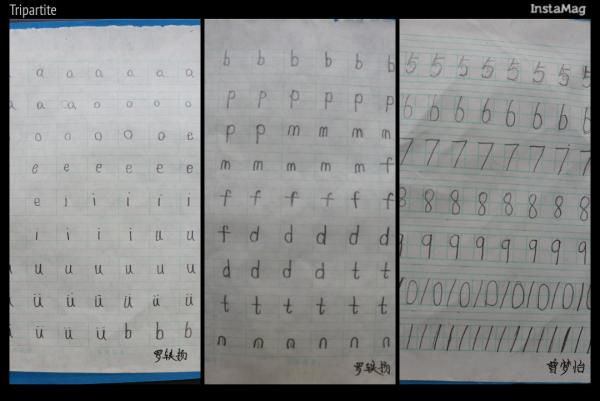 Tripartite
InstaMag
a a a a a a
a a a o o o o
o o o o o e
e e e e e e
e i i i i i
i i i i u u
u u u u u u
ü ü ü ü ü ü
ü ü ü b b b
b b b b b b
p p p p p p
p p m m m m
m m m m m f
f f f f f f
f d d d d d
d d d d t t
t t t t t t
n n n n n n
5 5 5 5 5 5 5 5
6 6 6 6 6 6 6 6
7 7 7 7 7 7 7 7
8 8 8 8 8 8 8 8
9 9 9 9 9 9 9 9
10 10 10 10 10 10 10 1
曾梦怡